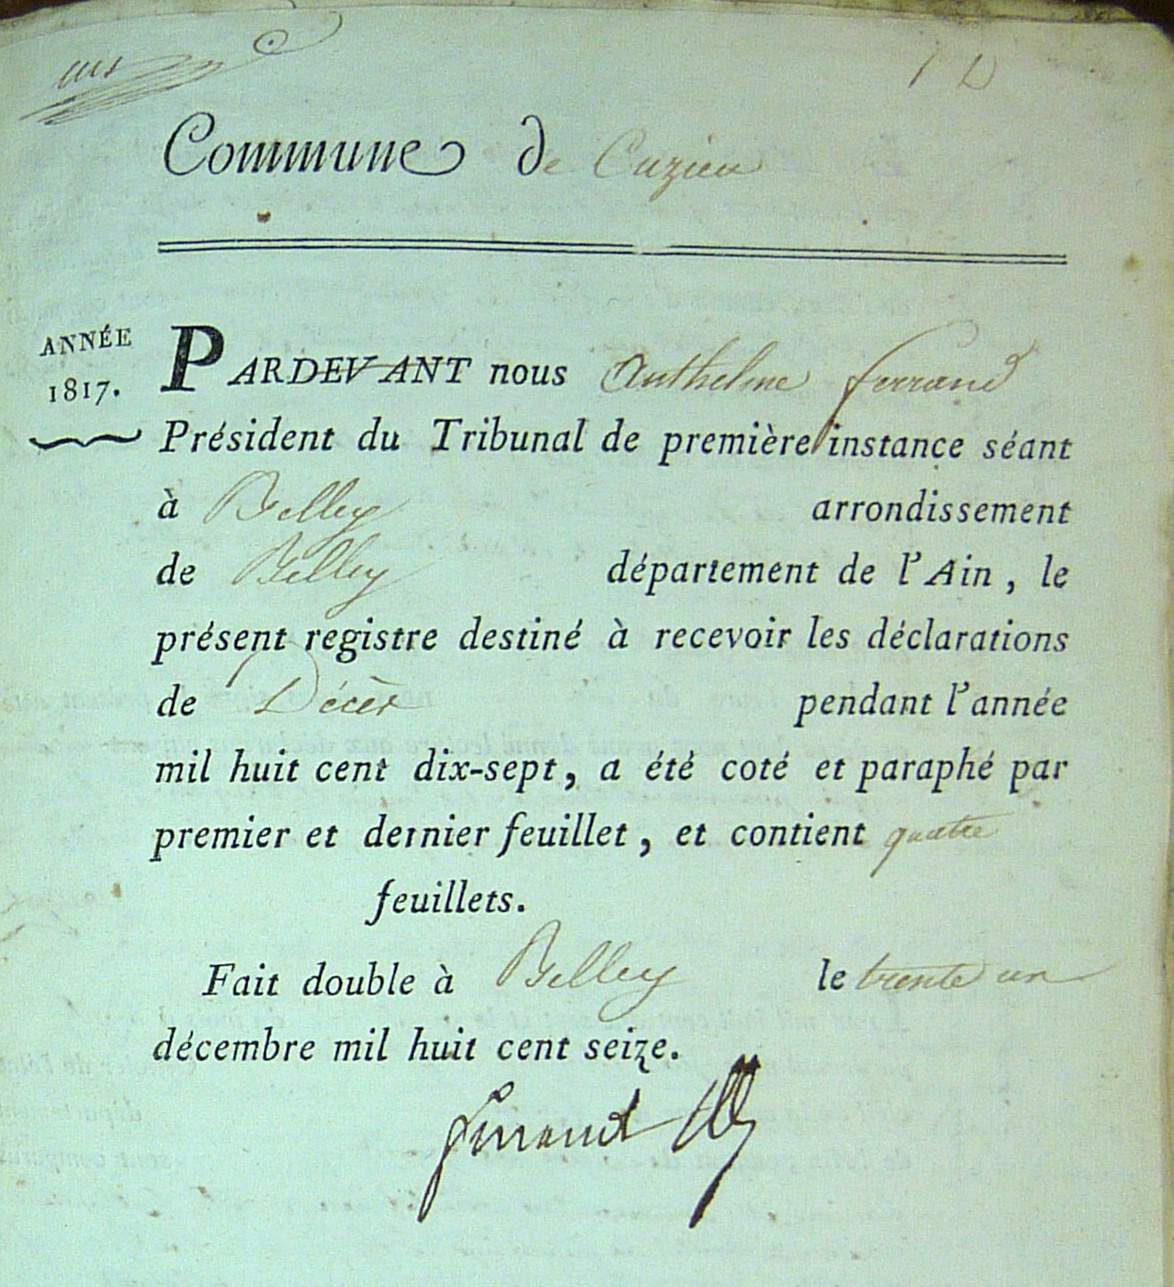 Commune de Cuzieu
ANNÉE
1817.
PARDEVANT nous Anthelme ferrand
Président du Tribunal de première instance séant
à Belley arrondissement
de Belley département de l'Ain, le
présent registre destiné à recevoir les déclarations
de Décès pendant l'année
mil huit cent dix-sept, a été coté et paraphé par
premier et dernier feuillet, et contient quatre
feuillets.
Fait double à Belley le trente un
décembre mil huit cent seize.
ferrand